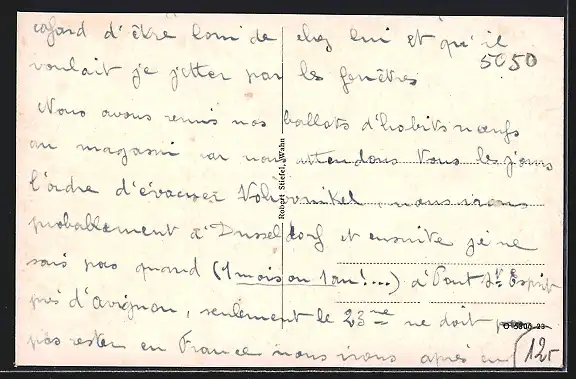 cafard d'être loin de chez lui et qu'il
voulait je jetter par les fenêtres
5050
Nous avons remis nos ballots d'habits neufs
au magasin car nous attendons tous les jours
l'ordre d'évacuer nous irons
probablement à Dusseldorf et ensuite je ne
sais pas quand (1 mois ou 1 an!...) à Pont St Esprit
près d'Avignon, seulement le 23me ne doit pas
pas rester en France nous irons après en
Robert Stiefel, Wahn
12,-